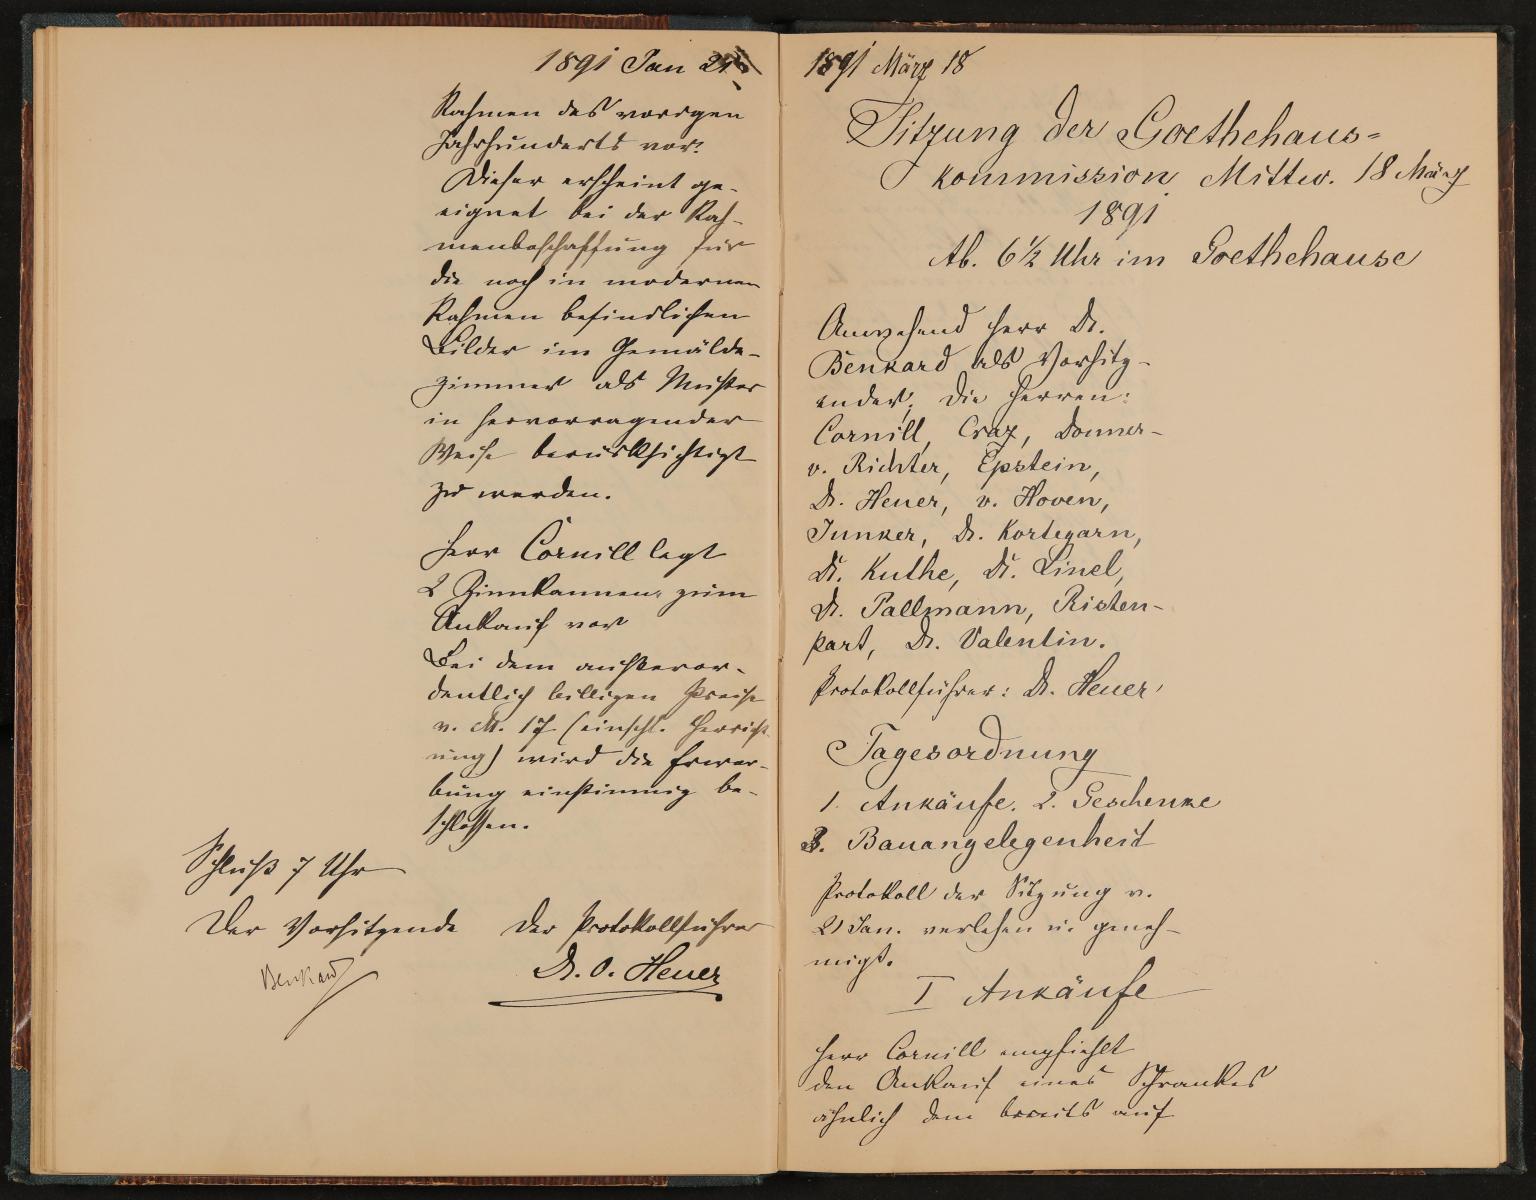 1891 Jan 21
Rahmen des vorigen
Jahrhunderts vor.
Dieser erscheint ge-
eignet bei der Rah-
menbeschaffung für
die noch in modernen
Rahmen befindlichen
Bilder im Gemälde-
zimmer als Muster
in hervorragender
Weise berücksichtigt
zu werden.
Herr Cornill legt
2 Zinnkannen zum
Ankauf vor
Bei dem außeror-
dentlich billigen Preise
v. M. 17 (einschl. Herricht
ung) wird die Erwer-
bung einstimmig be-
schlossen.
Schluß 7 Uhr
Der Vorsitzende Der Protokollführer
Benkard Dr. O. Heuer
1891 März 18
Sitzung der Goethehaus-
kommission Mittw. 18 März
1891
Ab. 6½ Uhr im Goethehause
Anwesend Herr Dr.
Benkard als Vorsitz-
ender; die Herren:
Cornill, Craz, Donner-
v. Richter, Epstein,
Dr. Heuer, v. Hoven,
Junker, Dr. Kortegarn,
Dr. Kuthe, Dr. Linel,
Dr. Pallmann, Risten-
part, Dr. Valentin.
Protokollführer: Dr. Heuer
Tagesordnung
1. Ankäufe. 2. Geschenke
3. Bauangelegenheit
Protokoll der Sitzung v.
21 Jan. verlesen u. geneh-
migt.
I Ankäufe
Herr Cornill empfiehlt
den Ankauf eines Schrankes
ähnlich dem bereits auf